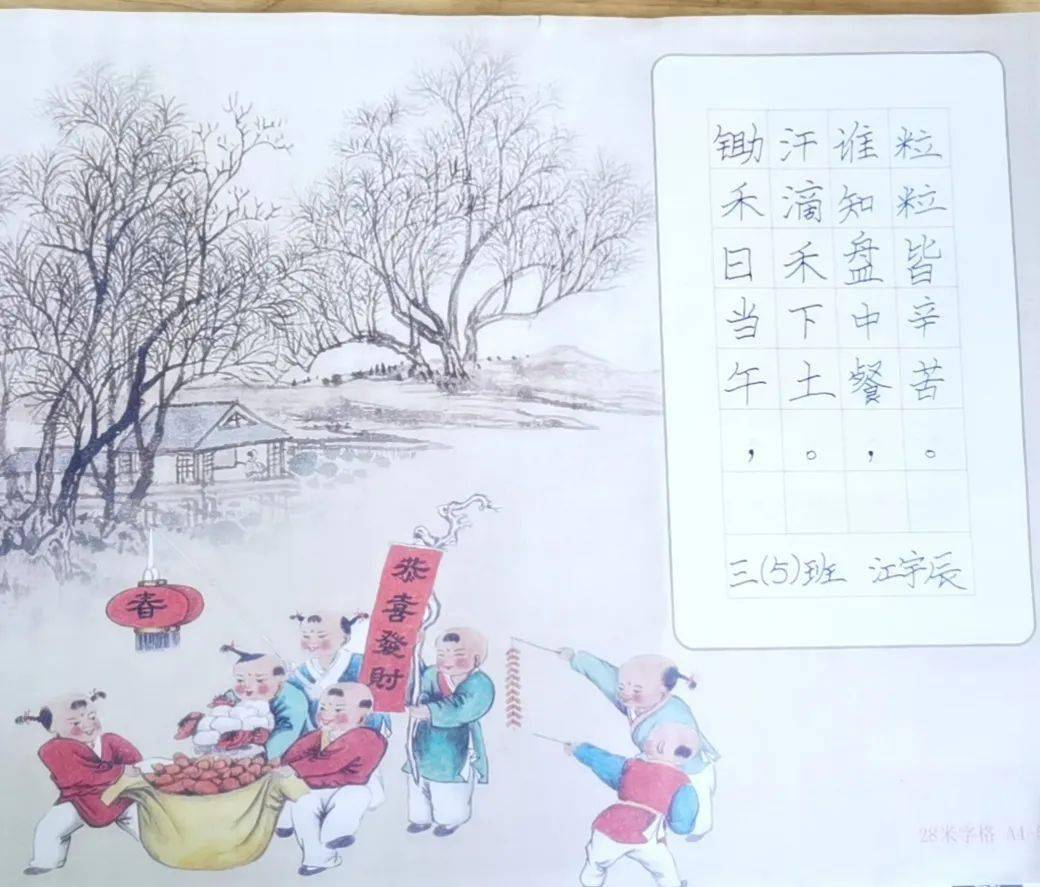 锄禾日当午，
汗滴禾下土。
谁知盘中餐，
粒粒皆辛苦。
三(5)班 江宇辰
春
恭喜發財
28米字格 A4